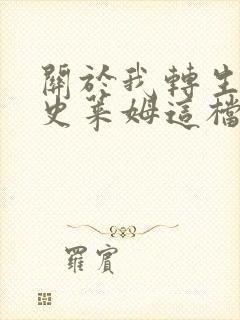 關於我轉生
史萊姆這檔
羅賓